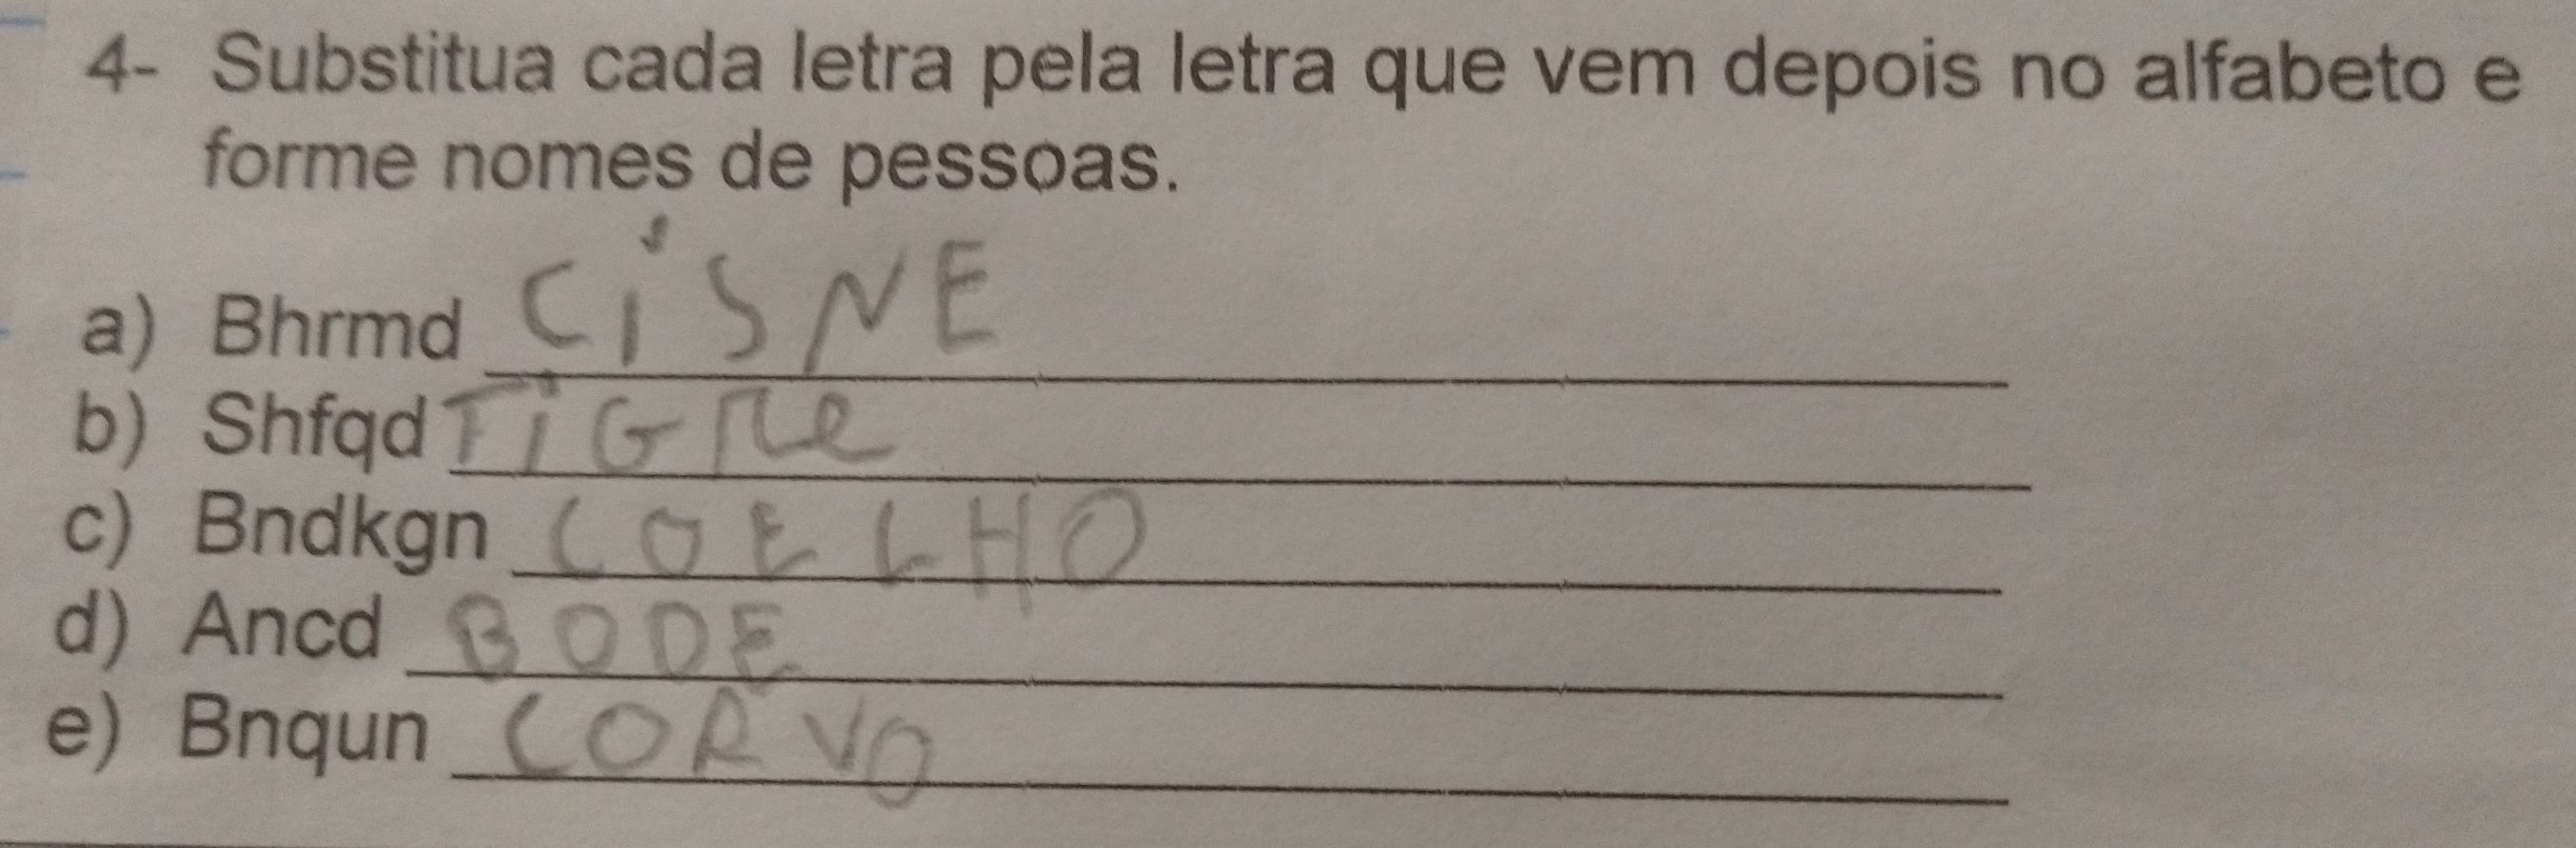 4- Substitua cada letra pela letra que vem depois no alfabeto e
forme nomes de pessoas.
a) Bhrmd CiSNE
b) Shfqd TiGRe
c) Bndkgn COELHO
d) Ancd BODE
e) Bnqun CORVO